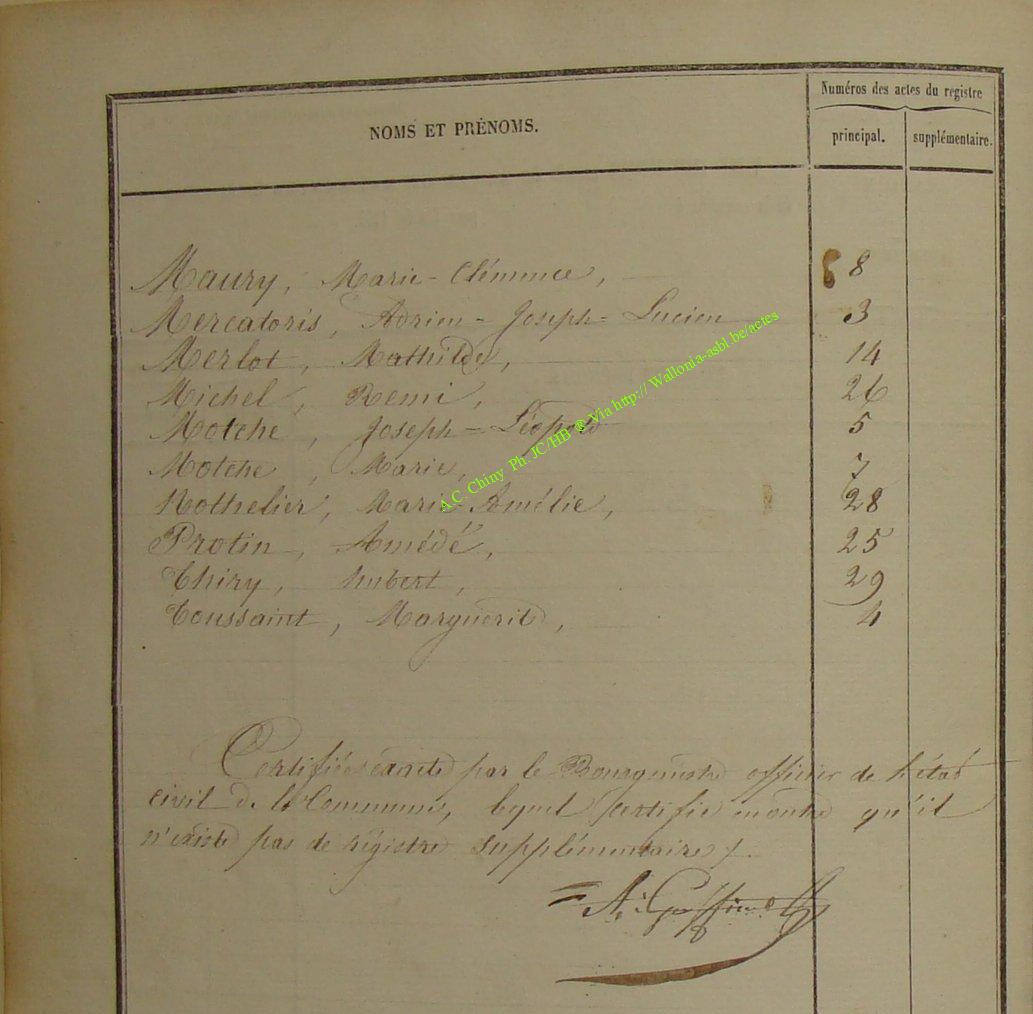 Numéros des actes du registre
NOMS ET PRÉNOMS.
principal. supplémentaire.
Maury, Marie-Clémence, 8
Mercatoris, Adrien-Joseph-Lucien 3
Merlot, Mathilde, 14
Michel, Remi, 26
Motche, Joseph-Léopold 5
Motche, Marie, 7
Nothelier, Marie-Amélie, 28
Protin, Amédé, 25
Thiry, Hubert, 29
Toussaint, Marguerite, 4
A.C. Chiny Ph. JC/HB ® Via http:// Wallonia-asbl.be/actes
Certifiée exacte par le Bourgmestre officier de l'état
civil de la Commune, lequel certifie en outre qu'il
n'existe pas de régistre supplémentaire